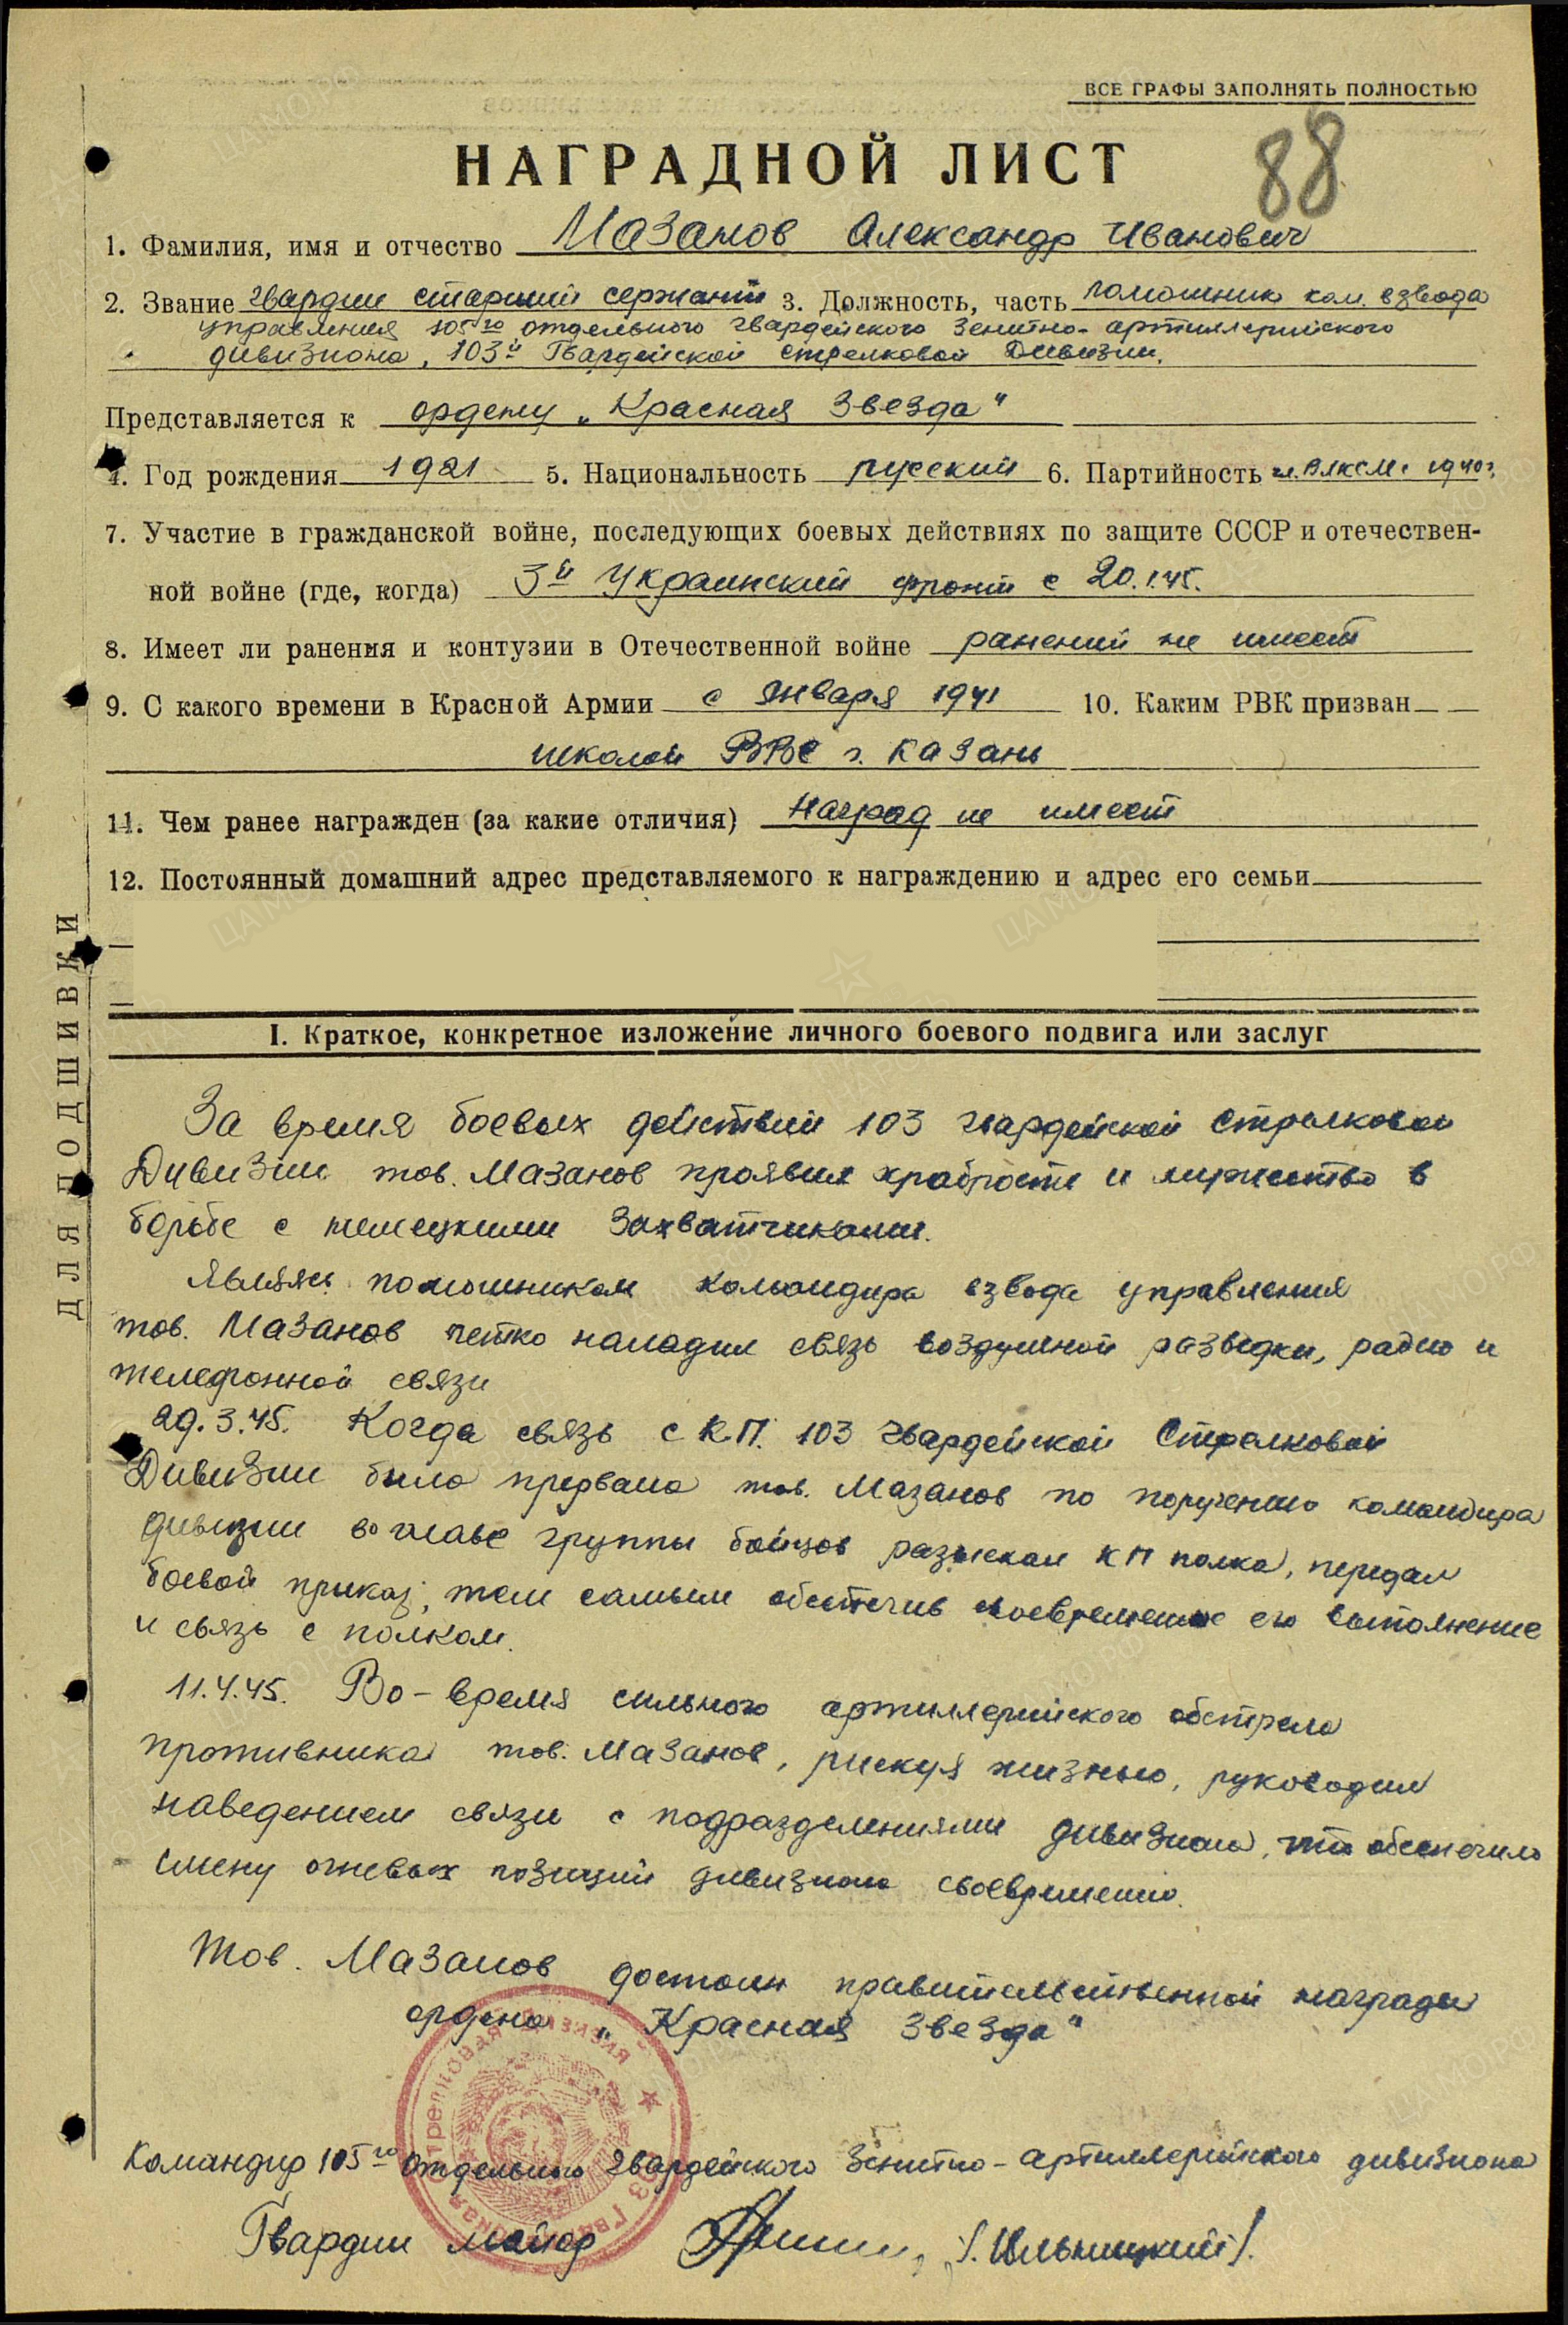 ВСЕ ГРАФЫ ЗАПОЛНЯТЬ ПОЛНОСТЬЮ
88
НАГРАДНОЙ ЛИСТ
1. Фамилия, имя и отчество Мазанов Александр Иванович
2. Звание гвардии старший сержант 3. Должность, часть помошник ком. взвода
управления 105го отдельного гвардейского зенитно-артиллерийского
дивизиона, 103й Гвардейской стрелковой Дивизии.
Представляется к ордену „Красная Звезда"
4. Год рождения 1921 5. Национальность русский 6. Партийность чл. ВЛКСМ с 1940г.
7. Участие в гражданской войне, последующих боевых действиях по защите СССР и отечествен-
ной войне (где, когда) 3й Украинский фронт с 20.1.45.
8. Имеет ли ранения и контузии в Отечественной войне ранений не имеет
9. С какого времени в Красной Армии с января 1941 10. Каким РВК призван
школой ВВС г. Казань
11. Чем ранее награжден (за какие отличия) Наград не имеет
12. Постоянный домашний адрес представляемого к награждению и адрес его семьи
ДЛЯ ПОДШИВКИ
I. Краткое, конкретное изложение личного боевого подвига или заслуг
За время боевых действий 103 гвардейской Стрелковой
Дивизии тов. Мазанов проявил храбрость и мужество в
борьбе с немецкими захватчиками.
Являясь помошником командира взвода управления
тов. Мазанов четко наладил связь воздушной разведки, радио и
телефонной связи
29.3.45. Когда связь с К.П. 103 гвардейской Стрелковой
Дивизии было прервана тов. Мазанов по поручению командира
дивизии во главе группы бойцов разыскал КП полка, передал
боевой приказ, тем самым обеспечив своевременное его выполнение
и связь с полком.
11.4.45. Во-время сильного артиллерийского обстрела
противника тов. Мазанов, рискуя жизнью, руководил
наведением связи с подразделениями дивизиона, что обеспечило
смену огневых позиций дивизиона своевременно.
Тов. Мазанов достоин правительственной награды
ордена „Красная Звезда"
Командир 105го отдельного гвардейского зенитно-артиллерийского дивизиона
Гвардии майор /Ильницкий/.